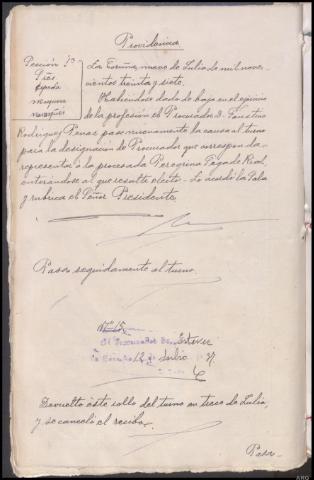 Providencia
Sección 1ª
Sres
Cepeda
La Coruña, nueve de Julio de mil nove-
cientos treinta y siete.
Habiéndose dado de baja en el ejercicio
de la profesión el Procurador D. Faustino
Rodriguez Penas pase nuevamente la causa al turno
para la designación de Procurador que corresponda
representar a la procesada Peregrina Fraga de Real,
enterándose al que resulte electo. Lo acordó la Sala
y rubrica el Señor Presidente.
Pasa seguidamente al turno.
Nº 15
Al Procurador Don Esteve
la Coruña 12 de Julio 37.
Devuelto este rollo del turno en trece de Julio,
y se canceló el recibo.
Pasa